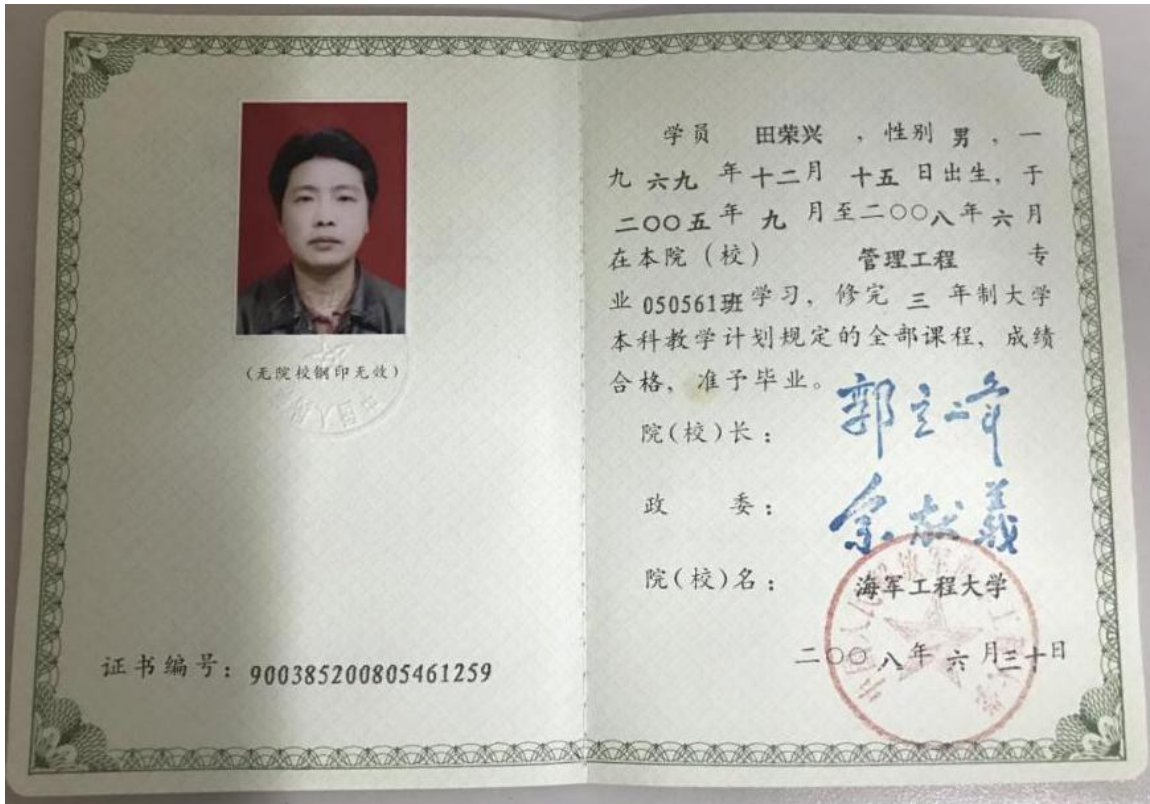 (无院校钢印无效)
证书编号：900385200805461259
学员 田荣兴 ，性别 男 ，一
九 六九 年 十二 月 十五 日出生，于
二〇〇五 年 九 月至二〇〇八 年 六 月
在本院（校） 管理工程 专
业 050561班 学习，修完 三 年制大学
本科教学计划规定的全部课程，成绩
合格，准予毕业。
院(校)长：
政 委：
院(校)名： 海军工程大学
二〇〇八 年 六 月 三十 日